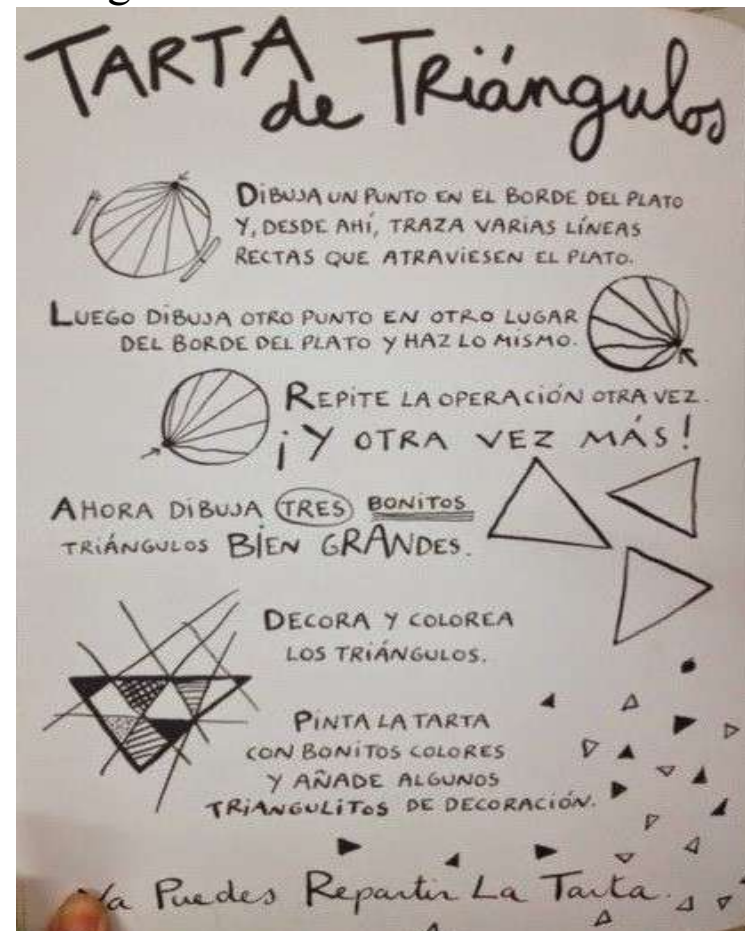 TARTA
de TRiángulos
DIBUJA UN PUNTO EN EL BORDE DEL PLATO
Y, DESDE AHÍ, TRAZA VARIAS LÍNEAS
RECTAS QUE ATRAVIESEN EL PLATO.
LUEGO DIBUJA OTRO PUNTO EN OTRO LUGAR
DEL BORDE DEL PLATO Y HAZ LO MISMO.
REPITE LA OPERACIÓN OTRA VEZ.
¡Y OTRA VEZ MÁS!
AHORA DIBUJA TRES BONITOS
TRIÁNGULOS BIEN GRANDES.
DECORA Y COLOREA
LOS TRIÁNGULOS.
PINTA LA TARTA
CON BONITOS COLORES
Y AÑADE ALGUNOS
TRIANGULITOS DE DECORACIÓN.
Ya Puedes Repartir La Tarta.